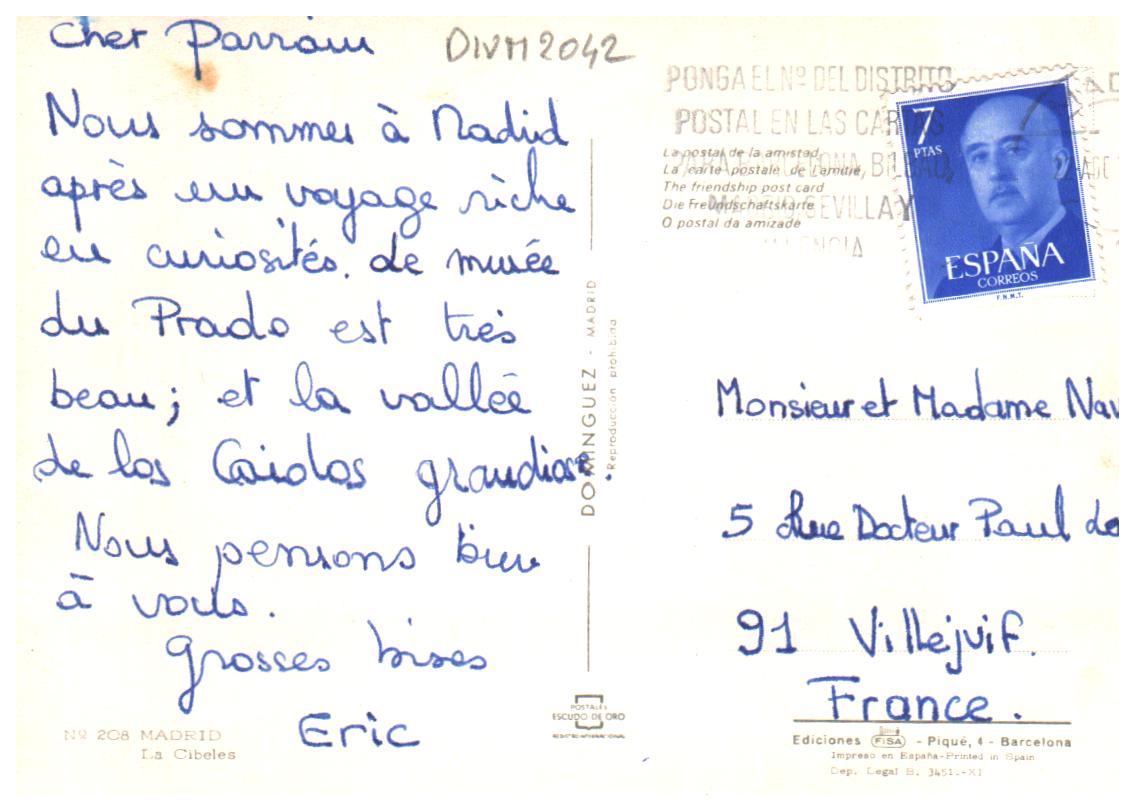 Cher Parrain
DIVM2042
Nous sommes à Madrid
après un voyage riche
en curiosités. Le musée
du Prado est très
beau; et la vallée
de los Caidos grandiose.
Nous pensons bien
à vous.
Grosses bises
Eric
Nº 208 MADRID
La Cibeles
DOMINGUEZ - MADRID
Reproducción prohibida
POSTALES
ESCUDO DE ORO
REGISTRO INTERNACIONAL
PONGA EL Nº DEL DISTRITO
POSTAL EN LAS CARTAS
PARA BARCELONA, BILBAO,
MADRID, SEVILLA Y
VALENCIA
La postal de la amistad
La carte postale de l'amitié,
The friendship post card
Die Freundschaftskarte
O postal da amizade
7
PTAS
ESPAÑA
CORREOS
F.N.M.T.
Monsieur et Madame Nav
5 Rue Docteur Paul
91 Villejuif.
France.
Ediciones FISA - Piqué, 4 - Barcelona
Impreso en España-Printed in Spain
Dep. Legal B. 3451.-XI